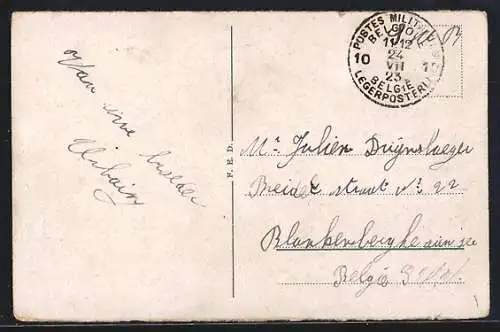 Van uwe broeder
Urbain
F. E. D.
POSTES MILITAIRES
BELGIQUE
11-12
24
VII
23
10 10
BELGIË
LEGERPOSTERIJ
Mr Julien Duynslaeger
Breidel straat No 22
Blankenberghe aan zee
België